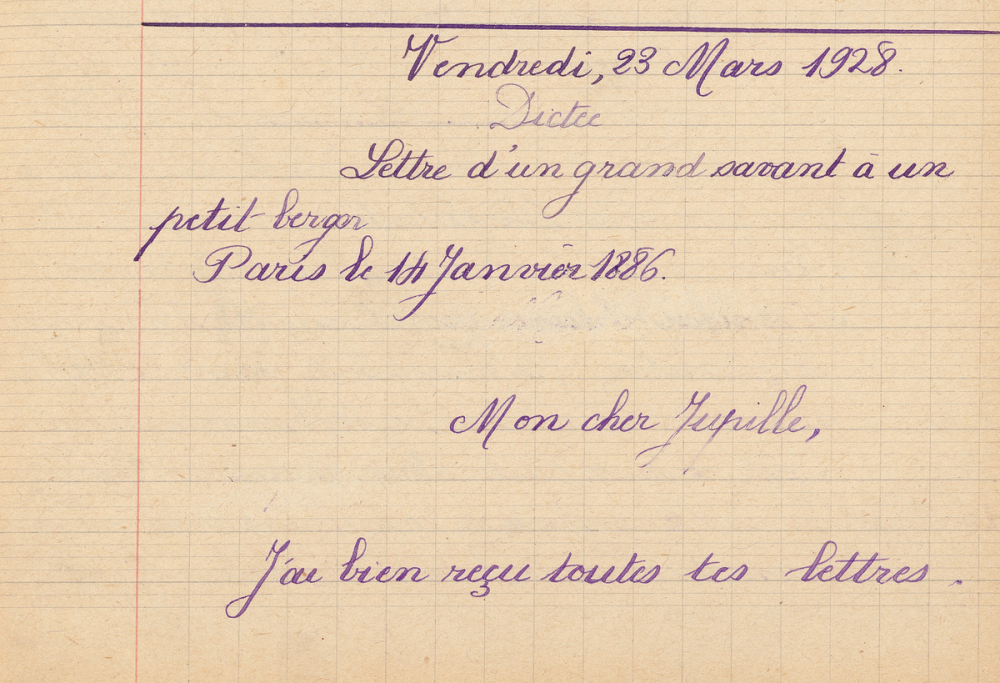 Vendredi, 23 Mars 1928.
Dictée
Lettre d'un grand savant à un
petit berger
Paris le 14 Janvier 1886.
Mon cher Jupille,
J'ai bien reçu toutes tes lettres.